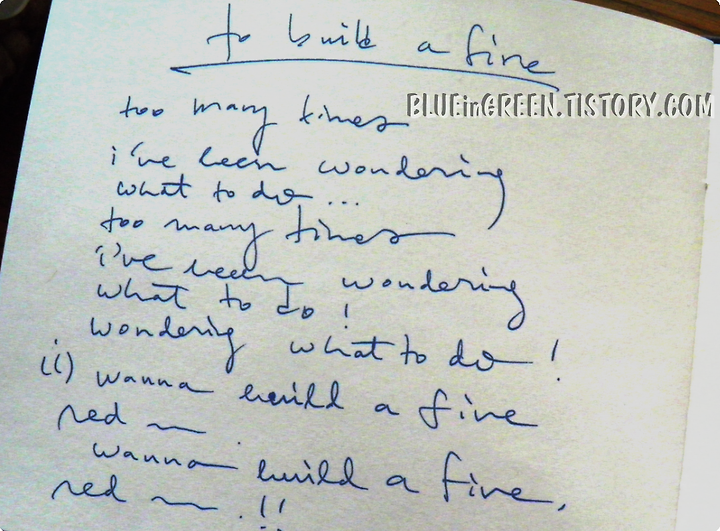 to build a fire
BLUEinGREEN.TISTORY.COM
too many times
i've been wondering
what to do...
too many times
i've been wondering
what to do!
wondering what to do!
ii) wanna build a fire
red
wanna build a fire,
red !!